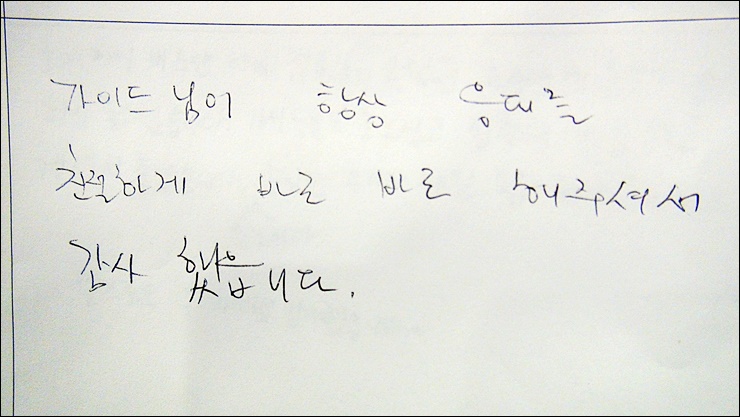 가이드님이 항상 응대를
친절하게 바로 바로 해주셔서
감사 했습니다.